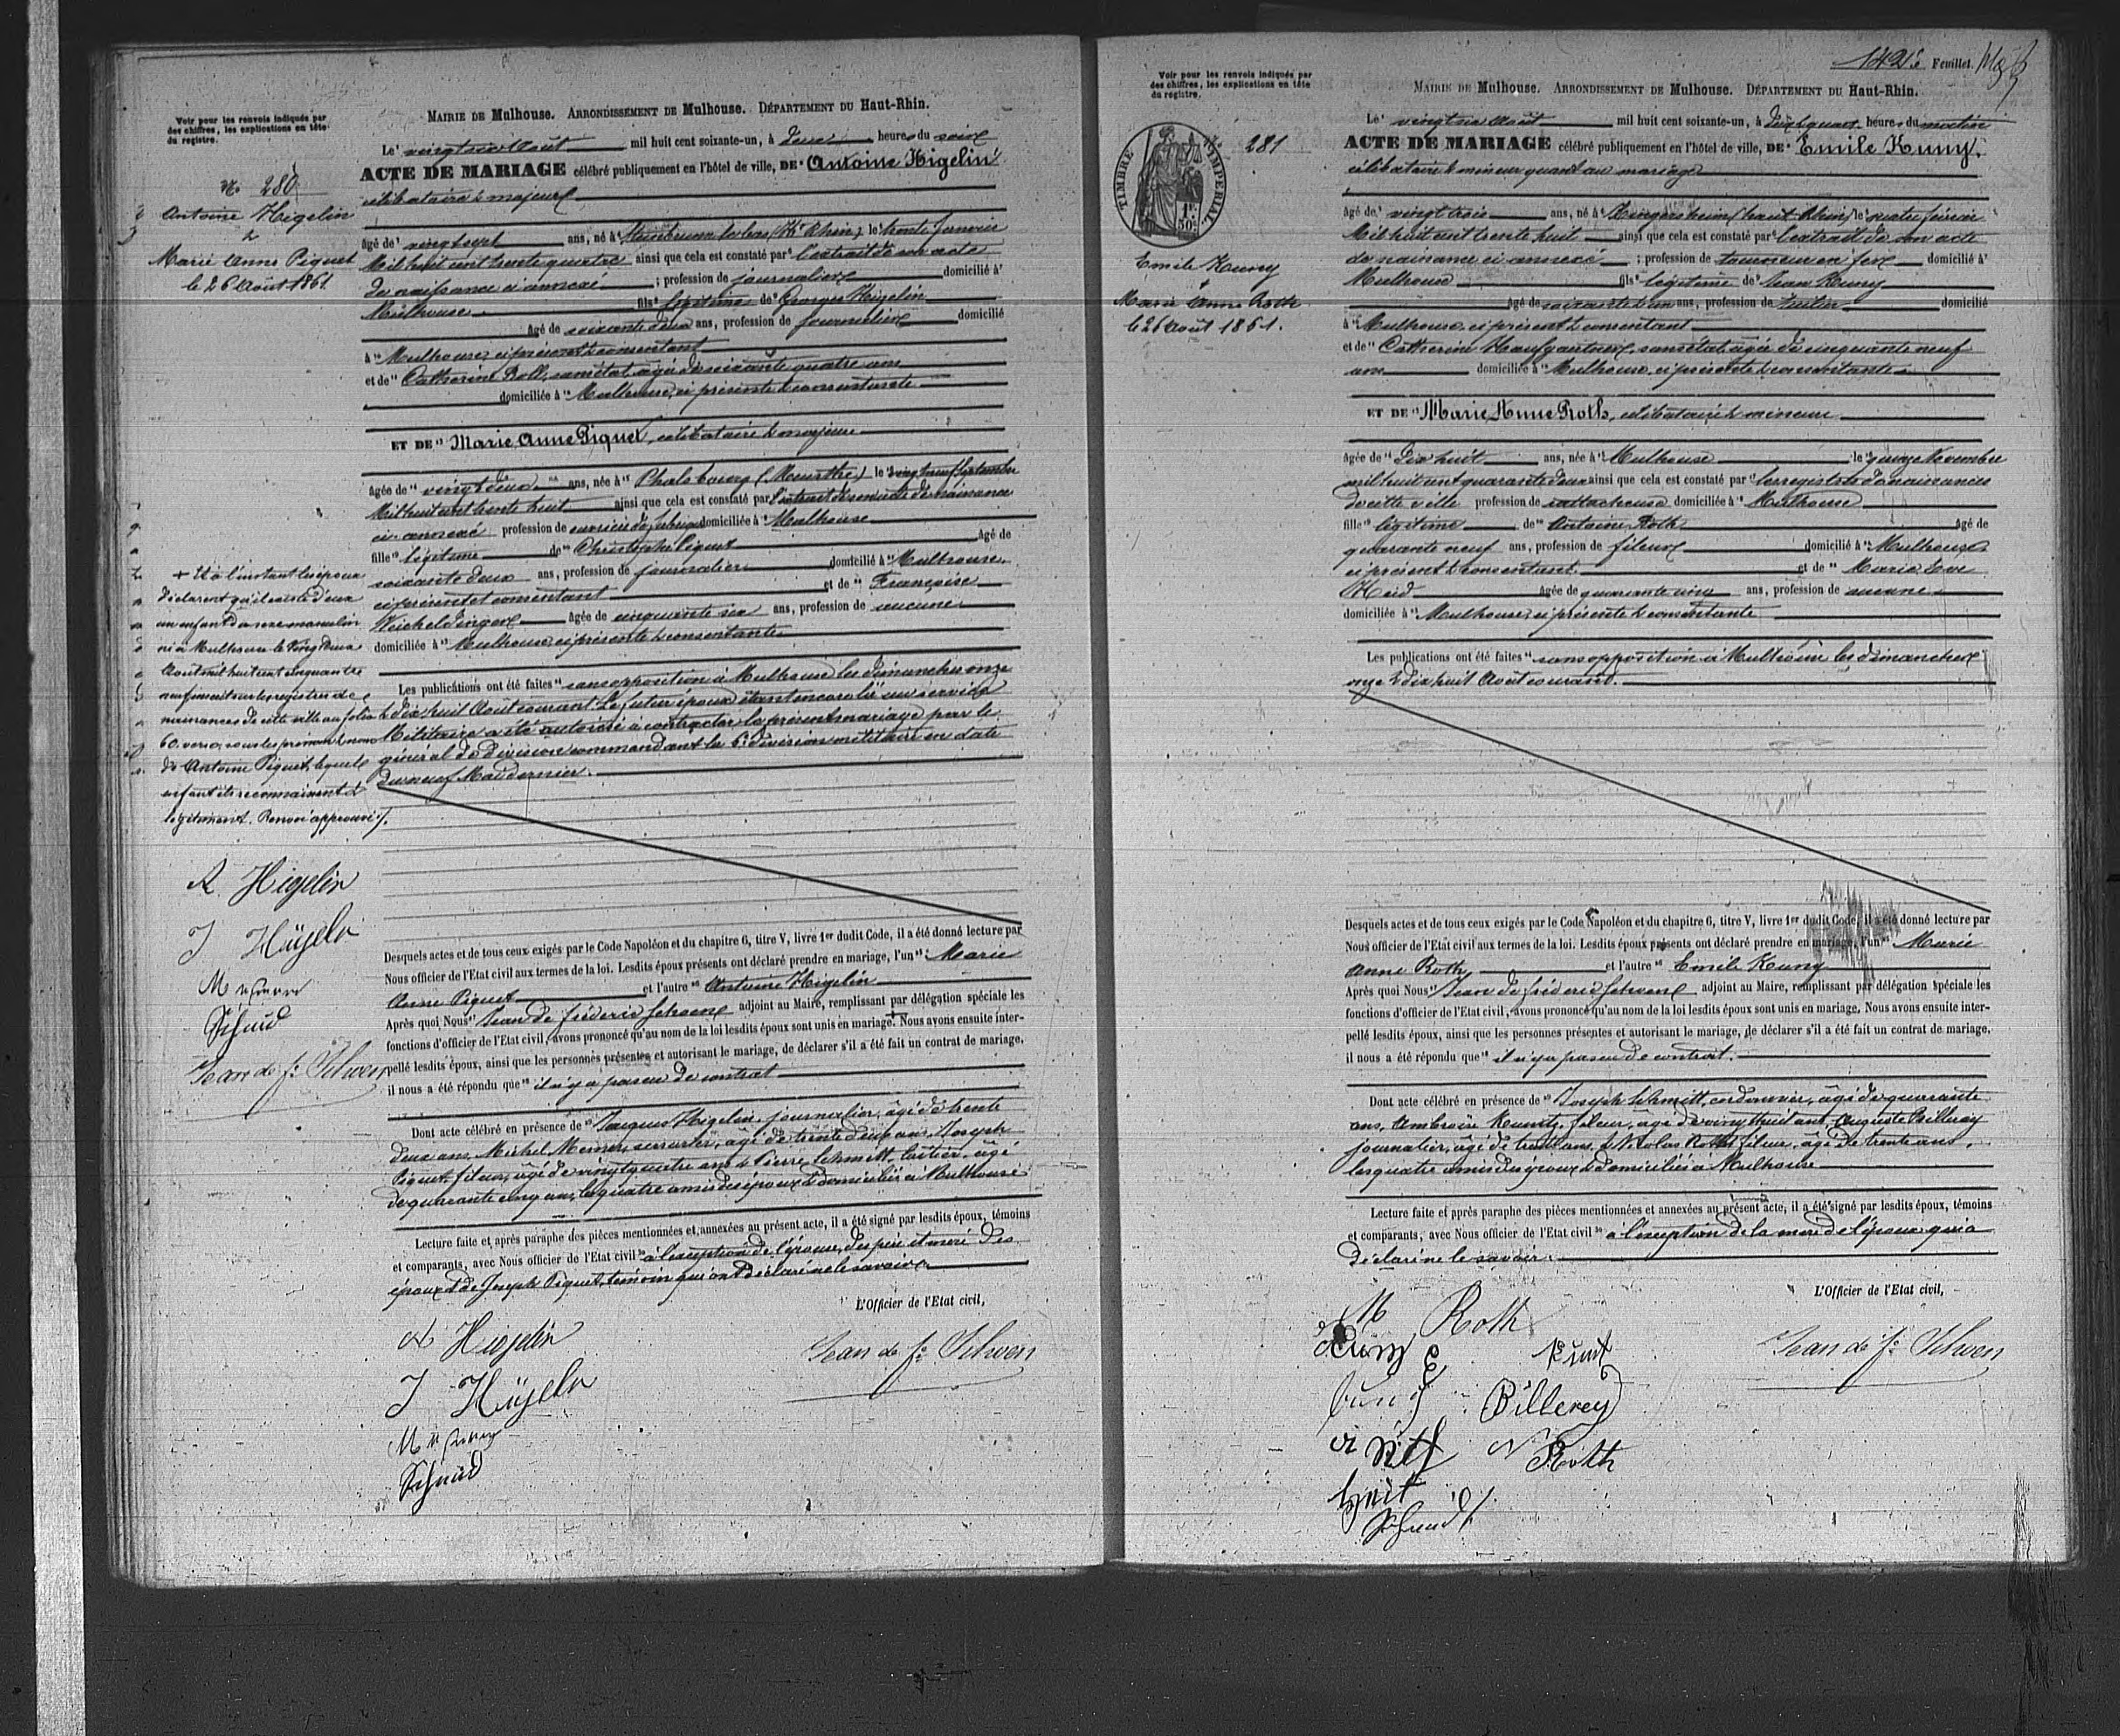 Voir pour les renvois indiqués par
des chiffres, les explications en tête
du registre.
N° 280
Antoine Higelin
&
Marie Anne Piquet
le 26 Août 1861.
MAIRIE DE Mulhouse. ARRONDISSEMENT DE Mulhouse. DÉPARTEMENT DU Haut-Rhin.
Le vingt six Août mil huit cent soixante-un, à deux heures du soir
ACTE DE MARIAGE célébré publiquement en l'hôtel de ville, DE Antoine Higelin
célibataire & majeur
âgé de vingt sept ans, né à Steinbrunn le bas (Ht Rhin) le trente Janvier
Mil huit cent trente quatre ainsi que cela est constaté par l'extrait de son acte
de naissance ci annexé ; profession de journalier domicilié à
Mulhouse fils légitime de Georges Heigelin
âgé de soixante deux ans, profession de journalier domicilié
à Mulhouse, ci présent & consentant
et de Catherine Roll, sans état, âgée de soixante quatre ans
domiciliée à Mulhouse, ci présente & consentante
ET DE Marie Anne Piquet, célibataire & majeure
âgée de vingt deux ans, née à Phalsbourg (Meurthe) le vingt neuf Septembre
Mil huit cent trente huit ainsi que cela est constaté par l'extrait de son acte de naissance
ci annexé profession de ouvrière de fabrique domiciliée à Mulhouse
fille légitime de Christophe Piquet âgé de
soixante deux ans, profession de journalier domicilié à Mulhouse
ci présent et consentant et de Françoise
Weicheldinger âgée de cinquante six ans, profession de aucune
domiciliée à Mulhouse, ci présente & consentante
Les publications ont été faites sans opposition à Mulhouse les dimanches onze
& dix huit Août courant. Le futur époux étant encore lié au service
Militaire a été autorisé à contracter le présent mariage par le
général de Division commandant la 6e division militaire en date
du neuf Mai dernier.
+ Et à l'instant les époux
déclarent qu'il existe d'eux
un enfant du sexe masculin
né à Mulhouse le vingt deux
Août mil huit cent cinquante
neuf inscrit sur les registres de
naissances de cette ville au folio
60 verso, sous les prénoms & nom
de Antoine Piquet, lequel
enfant ils reconnaissent &
légitiment. Renvoi approuvé
A Higelin
J Hügeln
Schmid
Jean de fc Schoen
Desquels actes et de tous ceux exigés par le Code Napoléon et du chapitre 6, titre V, livre 1er dudit Code, il a été donné lecture par
Nous officier de l'Etat civil aux termes de la loi. Lesdits époux présents ont déclaré prendre en mariage, l'un Marie
Anne Piquet et l'autre Antoine Higelin
Après quoi Nous Jean de fréderic Schoen adjoint au Maire, remplissant par délégation spéciale les
fonctions d'officier de l'Etat civil, avons prononcé qu'au nom de la loi lesdits époux sont unis en mariage. + Nous avons ensuite inter-
pellé lesdits époux, ainsi que les personnes présentes et autorisant le mariage, de déclarer s'il a été fait un contrat de mariage,
il nous a été répondu que il n'y a pas eu de contrat
Dont acte célébré en présence de Jacques Higelin, journalier, âgé de trente
deux ans, Michel Messner, serrurier, âgé de trente deux ans, Joseph
Piquet, fileur, âgé de vingt quatre ans & Pierre Schmitt, laitier, âgé
de quarante cinq ans, les quatre amis des époux & domiciliés à Mulhouse
Lecture faite et après paraphe des pièces mentionnées et annexées au présent acte, il a été signé par lesdits époux, témoins
et comparants, avec Nous officier de l'Etat civil à l'exception de l'épouse, des père et mère des
époux & de Joseph Piquet, témoin qui ont déclaré ne le savoir
L'Officier de l'Etat civil,
A Higelin
J Hügeln
Schmid
Jean de fc Schoen
142e Feuillet.
Voir pour les renvois indiqués par
des chiffres, les explications en tête
du registre.
TIMBRE IMPERIAL
1 F. 50 c.
281
Emile Kuny
&
Marie Anne Roth
le 26 Août 1861.
MAIRIE DE Mulhouse. ARRONDISSEMENT DE Mulhouse. DÉPARTEMENT DU Haut-Rhin.
Le vingt six Août mil huit cent soixante-un, à heures du matin
ACTE DE MARIAGE célébré publiquement en l'hôtel de ville, DE Emile Kuny,
célibataire & mineur quant au mariage
âgé de vingt trois ans, né à Kingersheim (haut Rhin) le quatre février
Mil huit cent trente huit ainsi que cela est constaté par l'extrait de son acte
de naissance ci annexé ; profession de tourneur en fer domicilié à
Mulhouse fils légitime de Jean Kuny
âgé de soixante un ans, profession de domicilié
à Mulhouse, ci présent & consentant
et de Catherine Haufgartner, sans état, âgée de cinquante neuf
ans domiciliée à Mulhouse, ci présente & consentante
ET DE Marie Anne Roth, célibataire & mineure
âgée de dix huit ans, née à Mulhouse le quinze Novembre
mil huit cent quarante deux ainsi que cela est constaté par les registres de naissances
de cette ville profession de rattacheuse domiciliée à Mulhouse
fille légitime de Antoine Roth âgé de
quarante neuf ans, profession de fileur domicilié à Mulhouse
ci présent & consentant et de Marie Eve
Heid âgée de quarante cinq ans, profession de aucune
domiciliée à Mulhouse, ci présente & consentante
Les publications ont été faites sans opposition à Mulhouse les dimanches
onze & dix huit Août courant.
Desquels actes et de tous ceux exigés par le Code Napoléon et du chapitre 6, titre V, livre 1er dudit Code, il a été donné lecture par
Nous officier de l'Etat civil aux termes de la loi. Lesdits époux présents ont déclaré prendre en mariage, l'un Marie
Anne Roth et l'autre Emile Kuny
Après quoi Nous Jean de fréderic Schoen adjoint au Maire, remplissant par délégation spéciale les
fonctions d'officier de l'Etat civil, avons prononcé qu'au nom de la loi lesdits époux sont unis en mariage. Nous avons ensuite inter-
pellé lesdits époux, ainsi que les personnes présentes et autorisant le mariage, de déclarer s'il a été fait un contrat de mariage,
il nous a été répondu que il n'y a pas eu de contrat.
Dont acte célébré en présence de Joseph Schmitt, cordonnier, âgé de quarante
ans, Ambroise Kuentz, fileur, âgé de vingt huit ans, Auguste Billerey
journalier, âgé de trente ans, & Nicolas Roth, fileur, âgé de trente ans,
les quatre amis des époux & domiciliés à Mulhouse
Lecture faite et après paraphe des pièces mentionnées et annexées au présent acte, il a été signé par lesdits époux, témoins
et comparants, avec Nous officier de l'Etat civil à l'exception de la mère de l'époux qui a
déclaré ne le savoir.
L'Officier de l'Etat civil,
M Roth
Kuny E
Billerey
N Roth
Schmid
Jean de fc Schoen